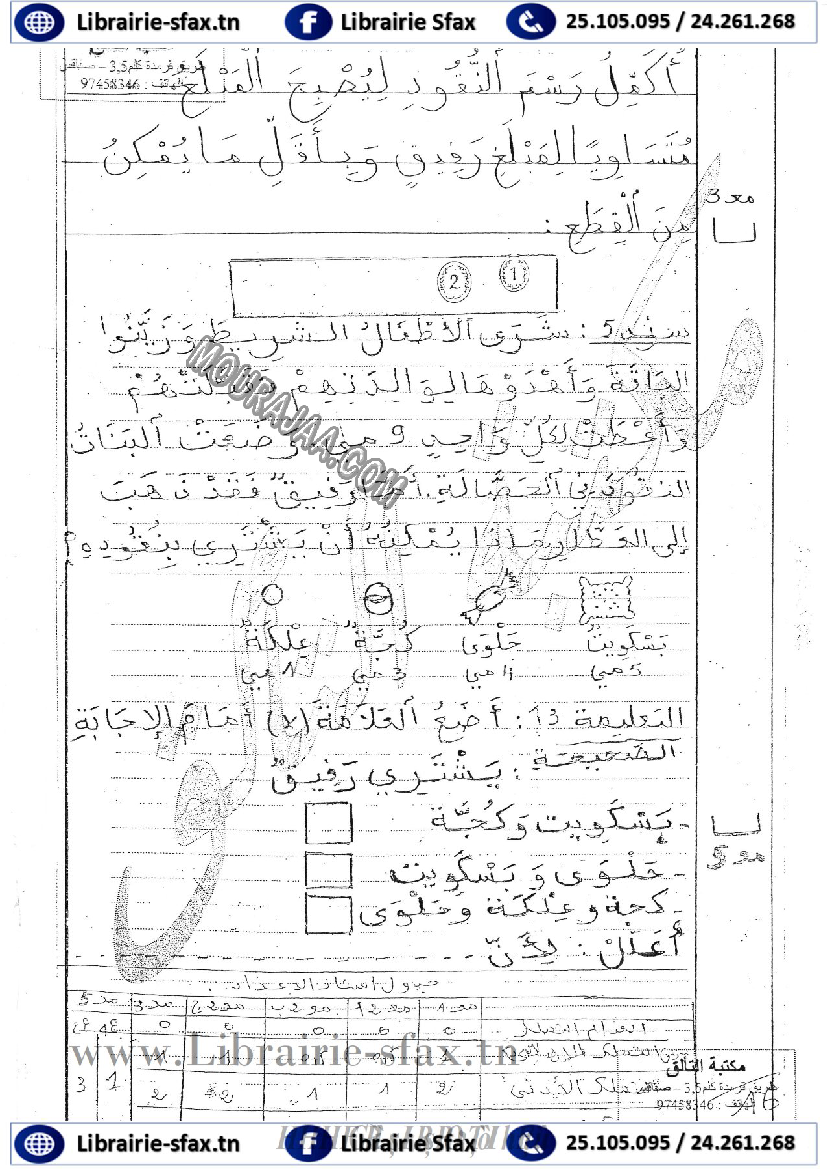 Librairie-sfax.tn Librairie Sfax 25.105.095 / 24.261.268
طريق قرمدة كلم 3,5 - صفاقس
الهاتف : 97458346
أُكَمِّلُ رَسْمَ النُّقُودِ لِيُصْبِحَ الْمَبْلَغُ
مُتَسَاوِيًا لِمَبْلَغِ رَفِيقٍ وَبِأَقَلِّ مَا يُمْكِنُ
مِنَ الْقِطَعِ :
مع3
2 1
سند 5 : شَرَى الأَطْفَالُ الشريطَ وَزَيَّنُوا
البَاقَةَ وَأَهْدَوْهَا لِوَالِدَتِهِمْ فَقَبَّلَتْهُمْ
وَأَعْطَتْ لِكُلِّ وَاحِدٍ 9 مي. وَضَعَتْ البَنَاتُ
النقُودَ فِي الحَصَّالَةِ. أَمَّا رَفِيقٌ فَقَدْ ذَهَبَ
إلى العَطَّارِ مَاذَا يُمْكِنُهُ أَنْ يَشْتَرِي بِنُقُودِهِ؟
بَسْكَوِيتٌ حَلْوَى كُجَّةٌ عِلْكَةٌ
5 مي 4 مي 3 مي 1 مي
التعليمة 13 : أَضَعُ العَلاَمَةَ (x) أَمَامَ الإِجَابَةِ
الصَّحِيحَةِ : يَشْتَرِي رَفِيقٌ
- بَسْكَوِيت وَكُجَّة
- حَلْوَى وَ بَسْكَوِيت
- كجة وعِلْكَة وَحَلْوَى
مع5
أُعَلِّلُ : لِأَنَّ
جدول اسناد الاعداد
مع1 مع2أ مع2ب مع2ج مع3 مع5
انعدام التملك 0 0 0 0 0
مكتبة التألق
طريق قرمدة كلم 3,5 صفاقس
الهاتف : 97458346
MOURAJAA.COM
www.Librairie-sfax.tn
Librairie-sfax.tn Librairie Sfax 25.105.095 / 24.261.268